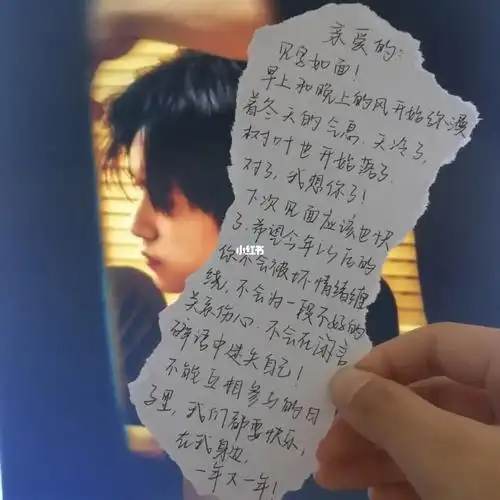 亲爱的：
见字如面！
早上和晚上的风开始弥漫
着冬天的气息.天冷了,
树叶也开始落了.
对了,我想你了!
下次见面应该也快
了.希望今年以后的
你不会被坏情绪缠
绕,不会为一段不好的
关系伤心.不会在闲言
碎语中迷失自己!
不能互相参与的日
子里,我们都要快乐,
在我身边,
一年又一年!
小红书